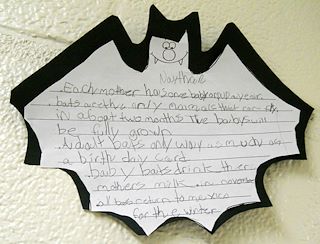 Nathalie
Each mother has one baby a year.
. bats are the only mammals that can fly.
in about two months the babys will
be fully grown
. Adalt bats only way as much as
a birthday card
. baby bats drink ther
mothers milk. in november
all bats return to mexico
for the winter